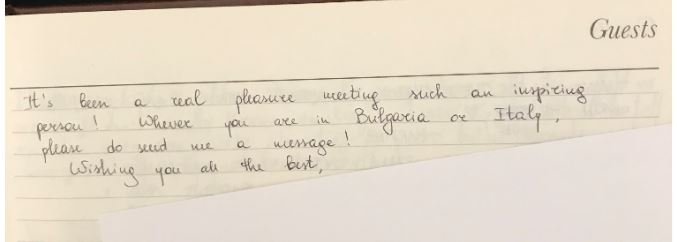 Guests
It's been a real pleasure meeting such an inspiring
person! Whever you are in Bulgaria or Italy,
please do send me a message!
Wishing you all the best,